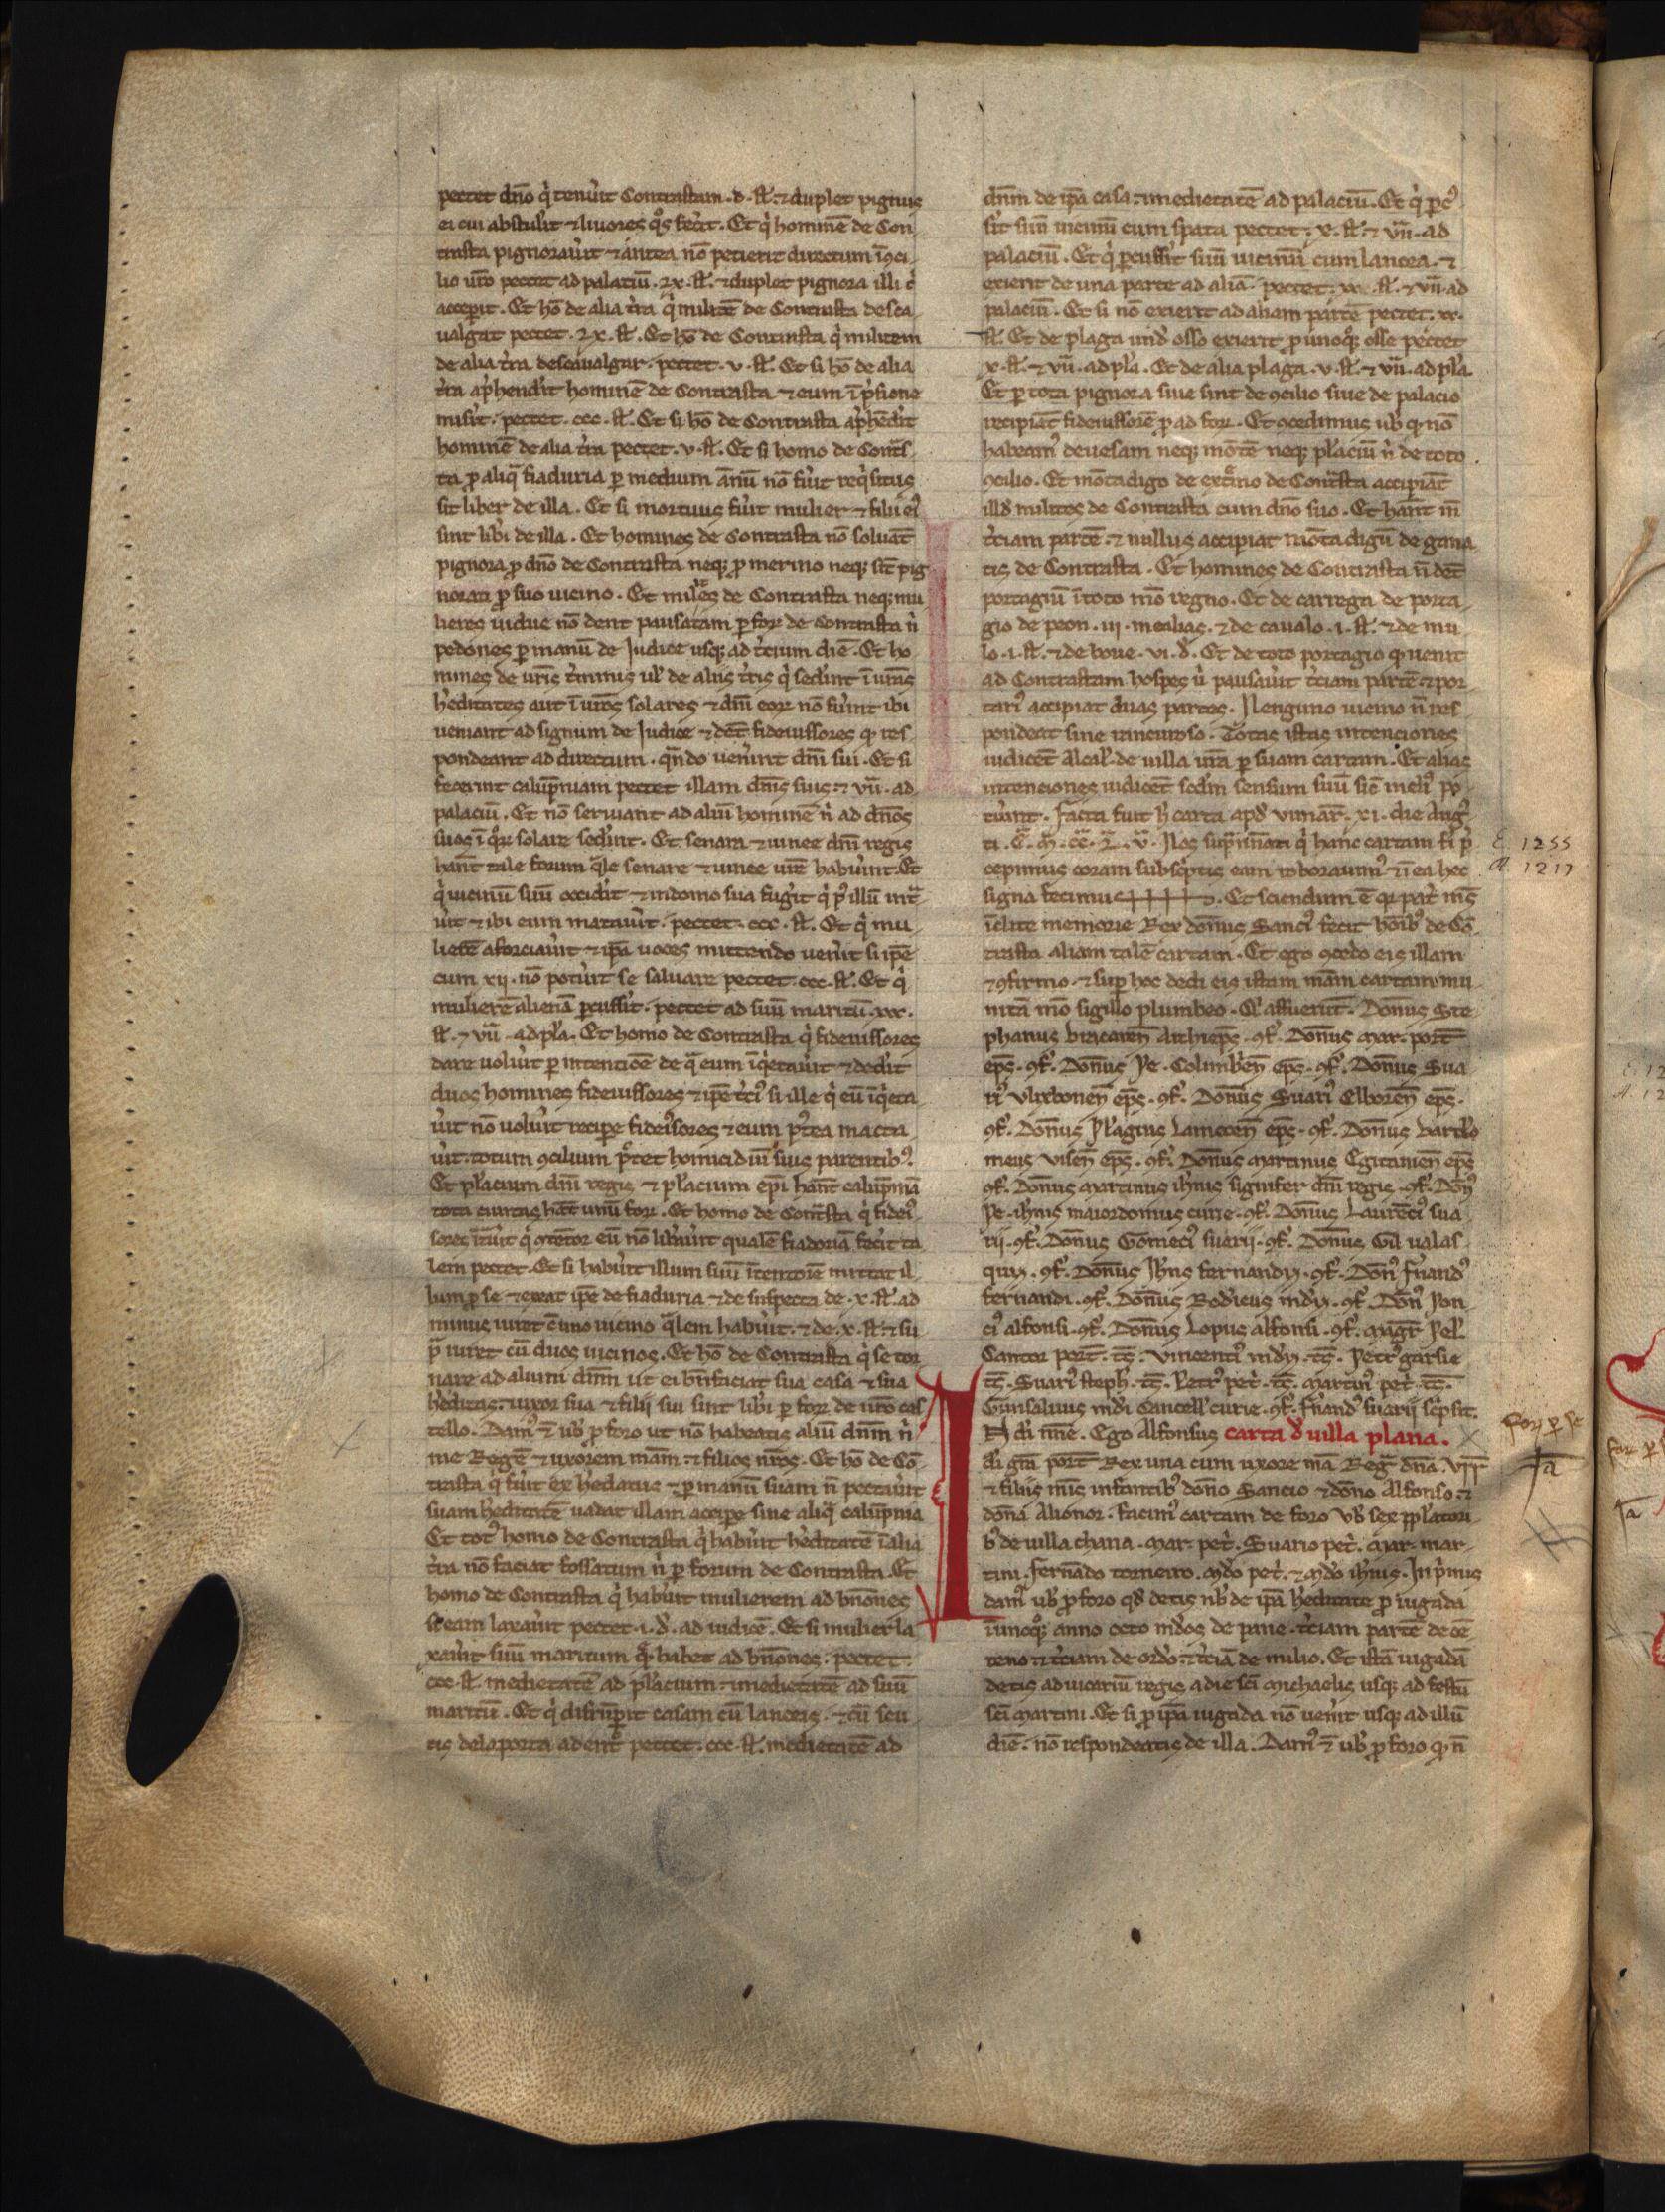 pectet dño q̇ tenu̇it Contrastam. d. sł. ⁊ duplet pignus
ei cui abstulit ⁊ liuores q̊s fec̃it. Et q̇ hominē de Con
trasta pignorau̇it ⁊ antea nō petierit directum ī ꝯci
lio ur̄o pectet ad palatiū. lx. sł. ⁊ duplet pignora illi c̉
accep̱it. Et hō de alia t̃ra q̇ militē de Contrasta desca
ualgat pectet. lx. sł. Et hō de Contrasta q̇ militem
de alia t̃ra descaualgar. pectet. v. sł. Et si hō de alia
t̃ra ap̃hendit hominē de Contrasta ⁊ eum ī p̃sione
misi̇t. pectet. ccc. sł. Et si hō de Contrasta ap̃hēdit
hominē de alia t̃ra pectet. v. sł. Et si homo de Cont̃s
ta ꝓ aliq̄ fiaduria ꝑ medium ānū nō fu̇it req̇situs
sit liber de illa. Et si mortuus fu̇it mulier ⁊ filii ei᷒
sint libi de illa. Et homines de Contrasta nō soluāt
pignora ꝓ dño de Contrasta neqꝫ ꝓ merino neqꝫ sīt pig
norati ꝓ suo uicino. Et milites de Contrasta neqꝫ mu
lieres uidue nō dent pausatam ꝑ foꝝ de Contrasta n̉
pedones ꝑ manū de Iudice usqꝫ ad t̉cium diē. Et ho
mines de ur̄is t̉minis ul̄ de aliis t̃ris q̇ sed̃int ī ur̄as
h̉editates aut ī ur̄os solares ⁊ dn̄i eoꝝ nō fu̇int ibi
ueniant ad signum de Iudice ⁊ dēt fideiussores qꝫ res
pondeant ad directum. qn̄do uen̉int dn̄i sui. Et si
fecerint calūpniam pectet illam dn̄is suis ⁊ vīī. ad
palaciū. Et nō seruiant ad aliū hominē n̉ ad dn̄os
suos ī q̊ꝝ solare sed̃int. Et senara ⁊ uinee dn̄i regis
hānt tale forum q̄le senare ⁊ uinee ur̄e habu̇int. Et
q̇ uicinū suū occidit ⁊ indomo sua fugi̇t q̇ p᷒ illū int̃
u̇it ⁊ ibi eum matau̇it. pectet. ccc. sł. Et q̇ mu
lierē aforciau̇it ⁊ ip̄a uoces mittendo uen̉it si ip̄e
cum xij. nō potu̇it se saluare pectet. ccc. sł. Et q̇
mulierē alienā ꝑcussi̇t. pectet ad suū maritū. xxx.
sł. ⁊ vīī. ad pl̄a. Et homo de Contrasta q̇ fideiussores
dare uolu̇it ꝑ intencōē de q̄ eum īq̇etau̇it ⁊ dedi̇t
duos homines fideiussores ⁊ ip̄e t̉ci᷒ si ille q̇ eū īq̇eta
u̇it nō uolu̇it recip̱e fideisores ⁊ eum p᷒tea macta
u̇it. totum ꝯcilium p̃tet homicidiū suis parentib᷒.
Et pl̄acium dn̄i regis ⁊ pl̄acium ep̄i hānt calūpniā
tota ciuitas hēt unū foꝝ. Et homo de Cont̃sta q̇ fidei᷒
sores īt̃u̇it q̇ ꝯtētor eū nō lib̉au̇it qualē fiadoriā feci̇t ta
lem pectet. Et si habu̇it illum suū ītentorē mittat il
lum ꝓ se ⁊ exeat ip̄e de fiaduria ⁊ de suspecta de. x. sł. ad
minus iuret c̄ uno uicino q̄lem habu̇it. ⁊ de. x. sł. ⁊ su
p̄ iuret cū duos uicinos. Et hō de Contrasta q̇ se tor
nare ad alium dn̄m ut ei bn̄faciat sua casa ⁊ sua
h̉editas. uxor sua ⁊ filij sui sint libi ꝑ foꝝ de ur̄o cas
tello. Dam᷒ ⁊ uob̄ ꝓ foro ut nō habeatis aliū dn̄m n̉
me Regē ⁊ uxorem mām. ⁊ filios nr̄os. Et hō de Cō
trasta q̇ fu̇it ex h̉edatus ⁊ ꝑ manū suam n̄ pectau̇it
suam h̉editatē uadat illam accip̱e sine aliq̄ calūpnia
Et tot᷒ homo de Contrasta q̇ habu̇it h̉editatē ī alia
t̃ra nō faciat fossatum n̉ ꝑ forum de Contrasta. Et
homo de Contrasta q̇ habu̇it mulierem ad bn̄ones
si eam laxau̇it pectet. i. d̉. ad iudicē. Et si mulier la
xau̇it suū maritum q̄ habet ad bn̄ones. pectet.
ccc. sł. medietatē ad pl̄acium ⁊ medietatē ad suū
maritū. Et q̇ disrūp̱it casam cū lanceis. ⁊ cū scu
tis dela porta adent̊ pectet. ccc. sł. medietatē ad
dn̄m de ip̄a casa ⁊ medietatē ad palaciū. Et q̇ ꝑc᷒
si̇t suū uicinū cum spata pectet. x. sł. ⁊ vīī. ad
palaciū. Et q̇ ꝑcussi̇t suū uicinū cum lancea. ⁊
exierit de una parte ad aliā. pectet. xx. sł. ⁊ vīī. ad
palaciū. Et si nō exierit ad aliam partē pectet. xx.
sł. Et de plaga und̉ osso exierit ꝓ unoqꝫ osse pectet
x. sł. ⁊ vīī. ad pl̄a. Et de alia plaga. v. sł. ⁊ vīī. ad pl̄a
Et ꝑ tota pignora siue sint de ꝯcilio siue de palacio
recipiāt fideiussorē ꝓ ad foꝝ. Et ꝯcedimus uob̄ qꝫ nō
habeam᷒ deuesam neqꝫ mōte neqꝫ pl̄aciū n̉ de toto
ꝯcilio. Et mōtadigo de ext̃no de Cont̃sta accipiāt
illd̉ milites de Contrasta cum dño suo. Et hānt in̄
t̉ciam partē. ⁊ nullus accipiat mōtadigū de gana
tis de Contrasta. Et homines de Contrasta n̄ dēt
portagiū ī toto mō regno. Et de carrega de porta
gio de peon. iij. mealias. ⁊ de caualo. i. sł. ⁊ de mu
lo. i. sł. ⁊ de boue. vi. d̉. Et de toto portagio qꝫ uenit
ad Contrastam hospes u̇ pausau̇it t̉ciam partē. ⁊ por
tari᷒ accipiat duas partes. Nenguno uicino n̄ res
pondeat sine rancuroso. Totas istas intenciones
iudicēt alcal̉. de uilla ur̄a ꝑ suam cartam. Et alias
intenciones iudicēt scd̄m sensum suū sic̄ meli᷒ po
tu̇int. Facta fuit h̉ carta apd̉ vimār̃. xi. die Aug᷒
ti. E. M. CC. L. V. Nos sup̃nn̄oti q̇ hanc cartam f̉i p̃
cepimus coram subsc̉ptis eam roborauim᷒ ⁊ ī ea hec
signa fecimus ++++. Et sciendum ē qꝫ pat̉ m̄s
īclite memorie Rex donnus Sanci᷒ fecit hōib᷒ de Cō
trasta aliam talē cartam. Et ego ꝯcedo eis illam
⁊ ꝯfirmo. ⁊ sup̱ hoc dedi eis istam mām cartam mu
nitā mō sigillo plumbeo. Q̇ affuerūt. Donn̄us Ste
phanus bracaren̄ Archiep̄s. ꝯf. Donn̄us Mar. port̄
ep̄s. ꝯf. Donn̄us Pe. Colimbrien̄ ep̄s. ꝯf. Donn̄us Sua
ri᷒ Ulixbonen̄ ep̄s. ꝯf. Donn̄us Suari᷒ Elboren̄ ep̄s.
ꝯf. Donn̄us Pl̄agius lamecen̄ ep̄s. ꝯf. Donn̄us Bartł̄o
meus Visen̄ ep̄s. ꝯf. Donn̄us Martinus Egitanien̄ ep̄s
ꝯf. Donn̄us Martinus iħnis signifer dn̄i regis. ꝯf. Don̄᷒
Pe. iħnis maiordomus curie. ꝯf. Donn̄us Laurēci᷒ sua
rij. ꝯf. Donn̄us Gomeci᷒ suerij. ꝯf. Donn̄us Gil ualas
quiz. ꝯf. Donn̄us Joħnis fernandiz. ꝯf. Don̄᷒ Fn̄and᷒
fernandi. ꝯf. Donn̄us Rodicus mēdiz. ꝯf. Don̄᷒ Pon
ci᷒ alfonsi. ꝯf. Donn̄us Lopus alfonsi. ꝯf. Mag̃r Pel̉.
Cantor port̄. ts̄. Vincenti᷒ mēdiz. ts̄. Petr᷒ garsie
ts̄. Suari᷒ steph̉. ts̄. Petr᷒ pet̉. ts̄. Martin᷒ pet̉. ts̄.
Gunsaluus mēdi Cancell̉ curie. ꝯf. Fn̄and᷒ suarij sc̉psit.
N di n̄nē. Ego Alfonsus carta d̉ uilla plana.
di grā port̄ Rex una cum uxore mā Reg̃ dn̄a. Vrr̄
⁊ filiis mīs infantib᷒ dōno Sancio ⁊ dōno Alfonso. ⁊
dōna Alionor. Facim᷒ cartam de foro uob̄ sex pp̄latori
b᷒ de uilla chana. Mar. pet̉. Suario pet̉. Mar. mar
tini. Fernādo torneiro. Mēdo pet̉. ⁊ Mēdo iħnis. In p̉mis
dam᷒ uob̄ ꝓ foro qd̉ detis nob̄ de ip̄a h̉editate ꝓ iugada
ī unoqꝫ anno octo mod̉os de pane. t̉ciam partē de cē
teno. ⁊ t̉ciam de ord̉o. ⁊ t̉ciā de milio. Et istā iugadā
detis ad uicariū regis a die sc̄i Michaelis usqꝫ ad festū
sc̄i Martini. Et si ꝓ ip̄a iugada nō uen̉it usqꝫ ad illū
diē. nō respondeatis de illa. Dam᷒ ⁊ uob̄ ꝓ foro qꝫ n̄
E 1255
A 1217
for ꝑ se